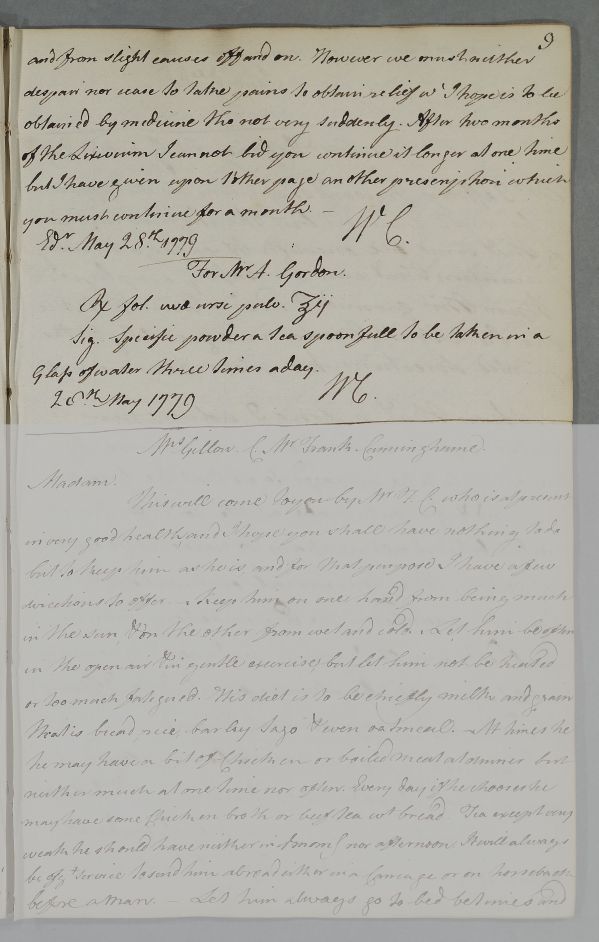 9
and from slight causes off and on. However we must neither
despair nor cease to take pains to obtain relief wᶜ I hope is to be
obtained by medicine tho not very suddenly. After two months
of the Lixivium I cannot bid you continue it longer at one time
but I have given upon tother page another prescription which
you must continue for a month. —
WC.
Edr. May 28.th 1779
For Mr A. Gordon.
Rx fol. uvæ ursi pulv. ℥ij
Sig. Specific powder a tea spoonfull to be taken in a
Glass of water three times a day.
28th May 1779 WC.
Mrs Gillow C. Mr Frank Cunninghame.
Madam.
This will come to you by Mr F. C. who is at present
in very good health and I hope you shall have nothing to do
but to keep him as he is and for that purpose I have a few
directions to offer. Keep him on one hand from being much
in the sun & on the other from wet and cold. Let him be often
in the open air & in gentle exercise but let him not be heated
or too much fatigued. His diet is to be chiefly milk and grain
that is bread rice barley Sago & even oatmeal. At times he
he may have a bit of Chicken or boiled meat at dinner but
neither much at one time nor often. Every day if he chooses he
may have some Chicken broth or beef tea wt bread. Tea except very
weak he should have neither in morng nor afternoon. It will always
be of service to send him abroad either in a Carriage or on horseback
before a man. — Let him always go to bed betimes and